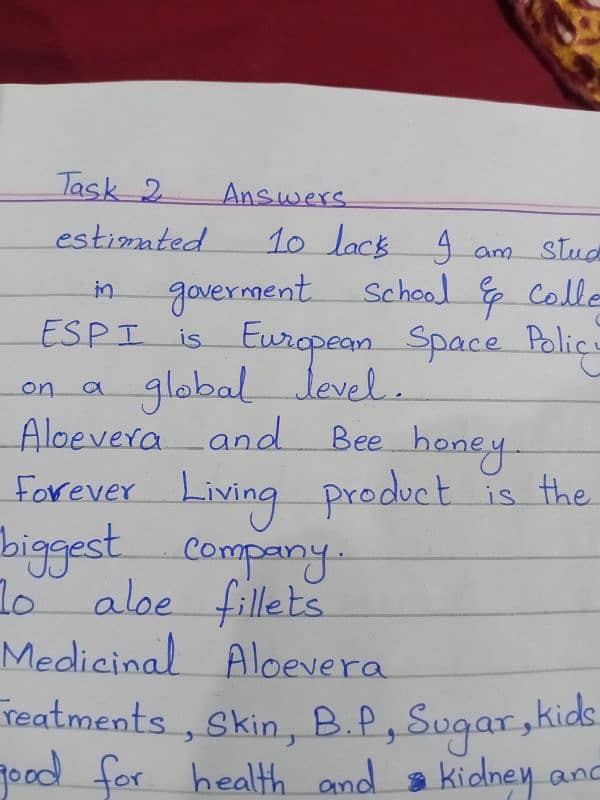 Task 2 Answers
estimated 10 lacks I am stud
in goverment School & Colle
ESPI is European Space Policy
on a global level.
Aloevera and Bee honey.
Forever Living product is the
biggest company.
10 aloe fillets
Medicinal Aloevera
Treatments, Skin, B.P, Sugar, kids
good for health and kidney and